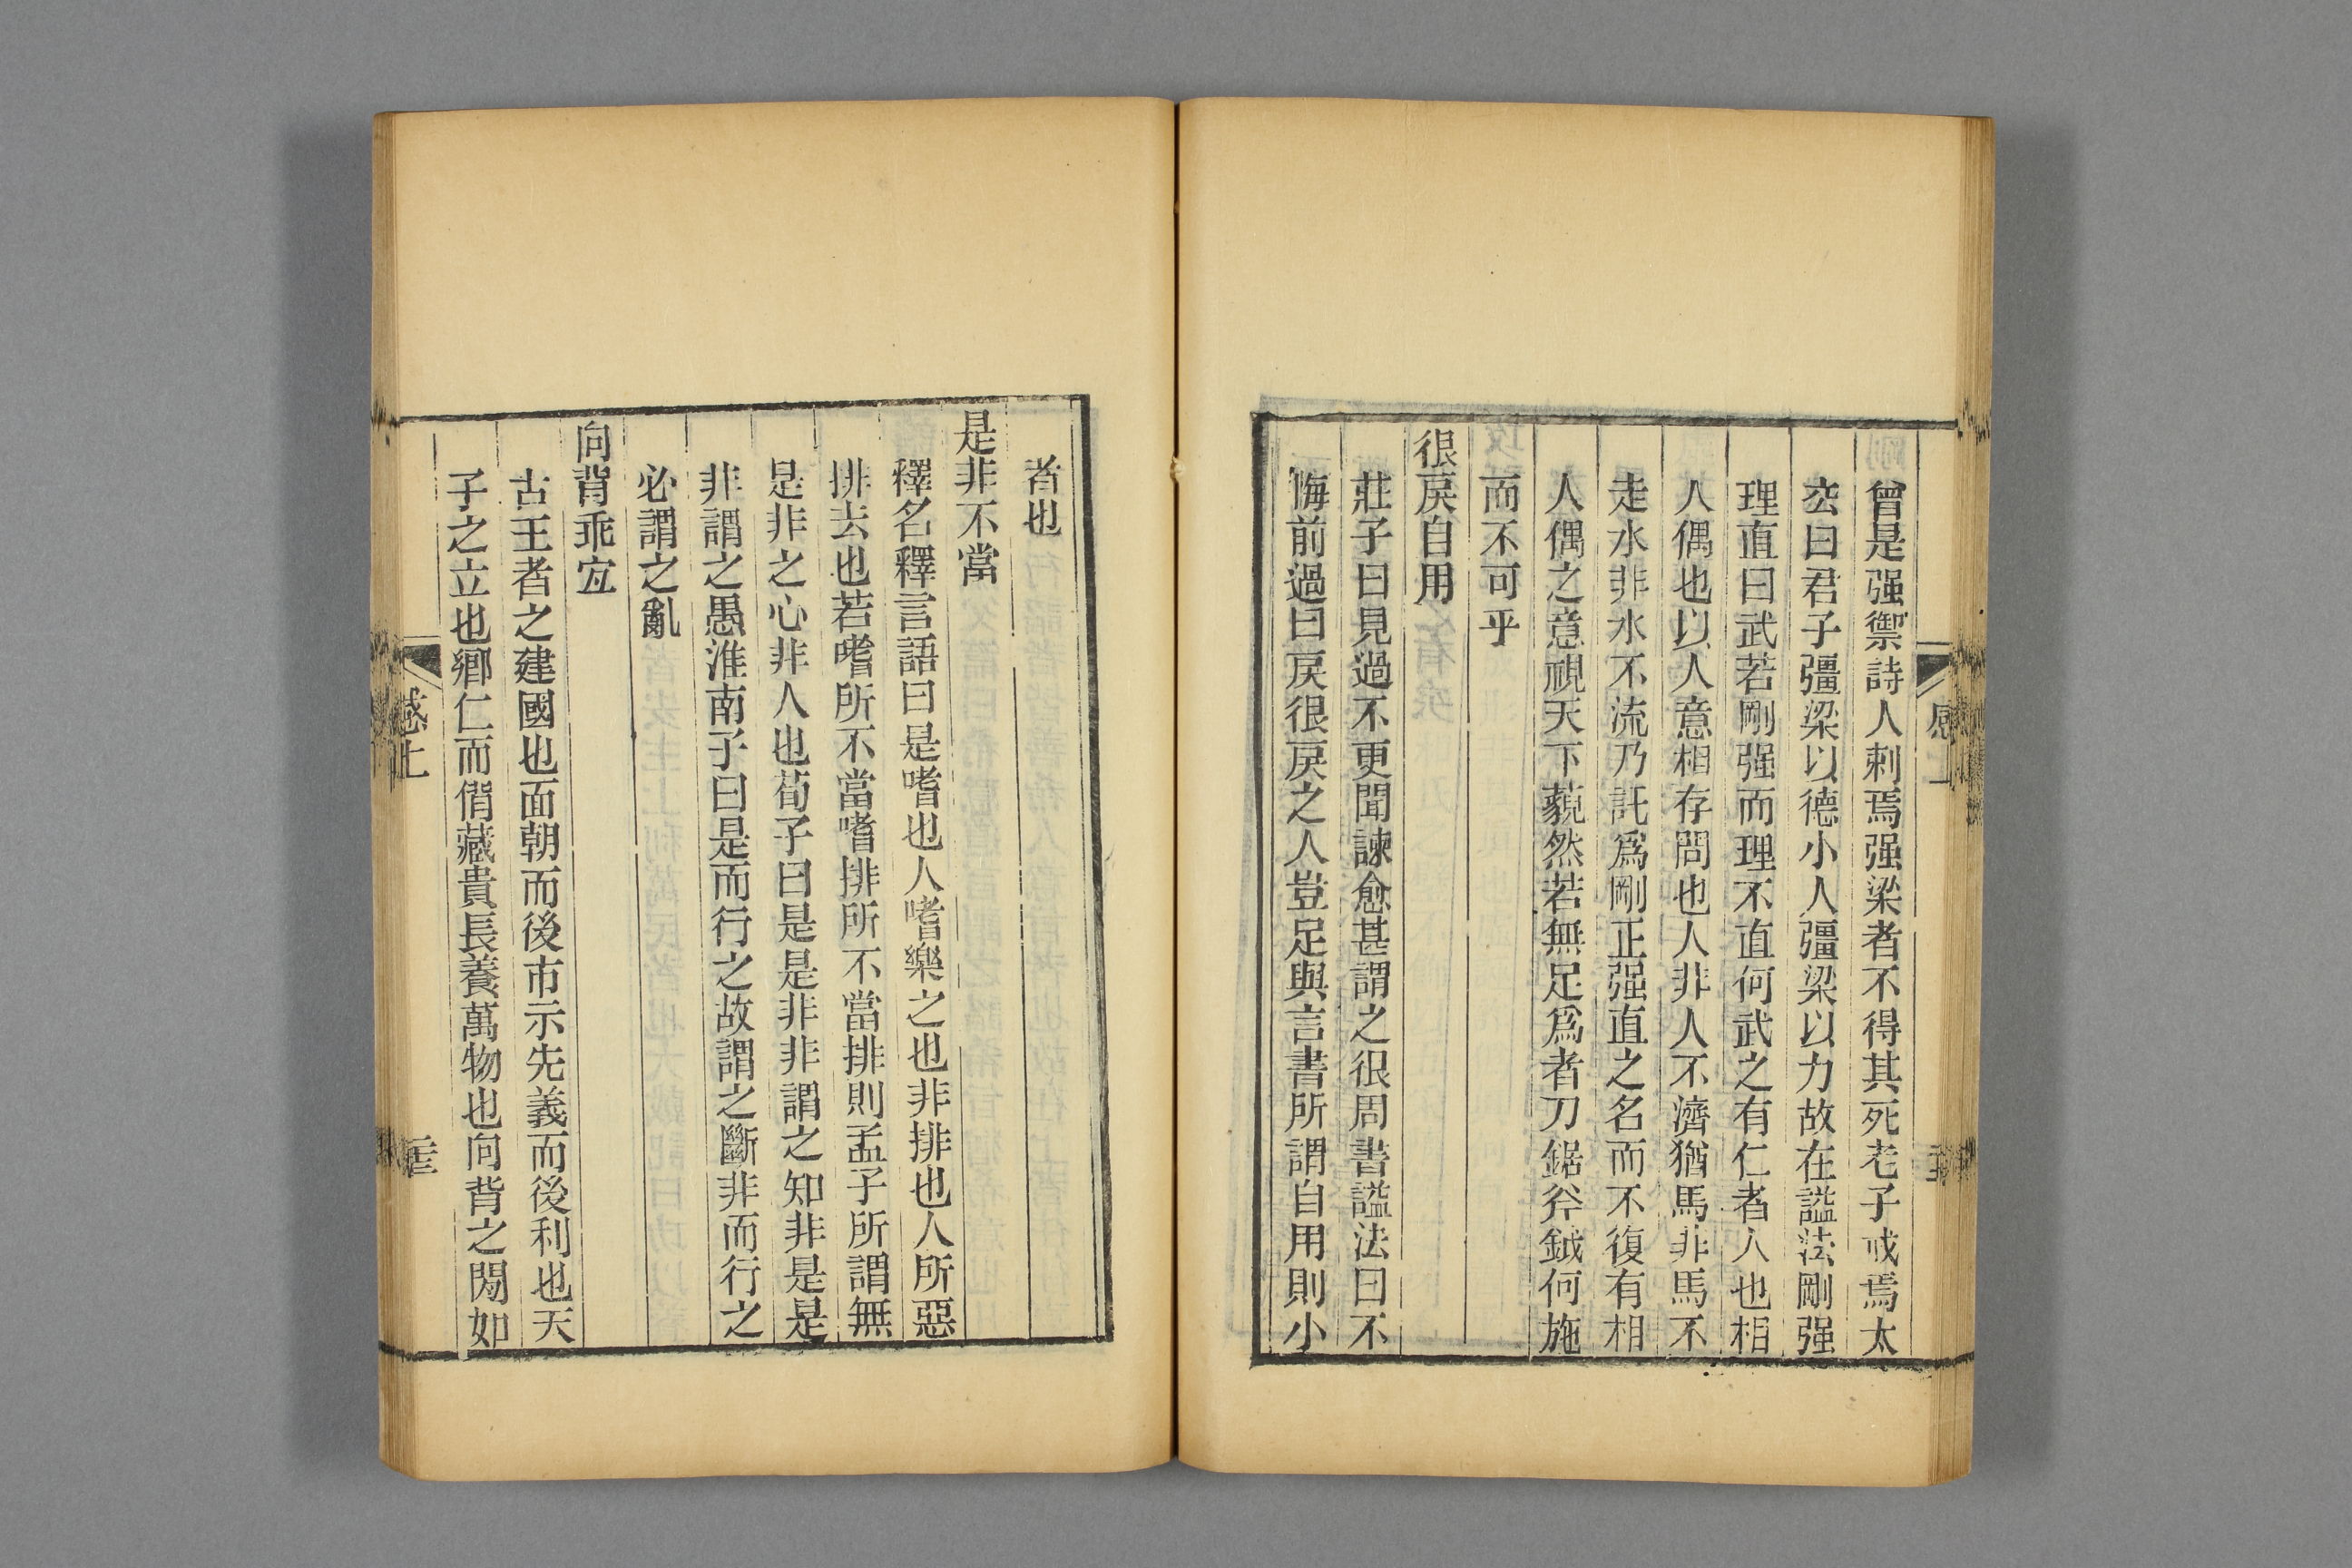 曾是强禦詩人刺焉强梁者不得其死老子戒焉太
玄曰君子彊梁以德小人彊梁以力故在諡法剛强
理直曰武若剛强而理不直何武之有仁者人也相
人偶也以人意相存問也人非人不濟猶馬非馬不
走水非水不流乃託爲剛正强直之名而不復有相
人偶之意視天下藐然若無足爲者刀鋸斧鉞何施
而不可乎
很戾自用
莊子曰見過不更聞諫愈甚謂之很周書諡法曰不
悔前過曰戾很戾之人豈足與言書所謂自用則小
者也
是非不當
釋名釋言語曰是嗜也人嗜樂之也非排也人所惡
排去也若嗜所不當嗜排所不當排則孟子所謂無
是非之心非人也荀子曰是是非非謂之知非是是
非謂之愚淮南子曰是而行之故謂之斷非而行之
必謂之亂
向背乖宜
古王者之建國也面朝而後市示先義而後利也天
子之立也鄉仁而偝藏貴長養萬物也向背之閒如
感上